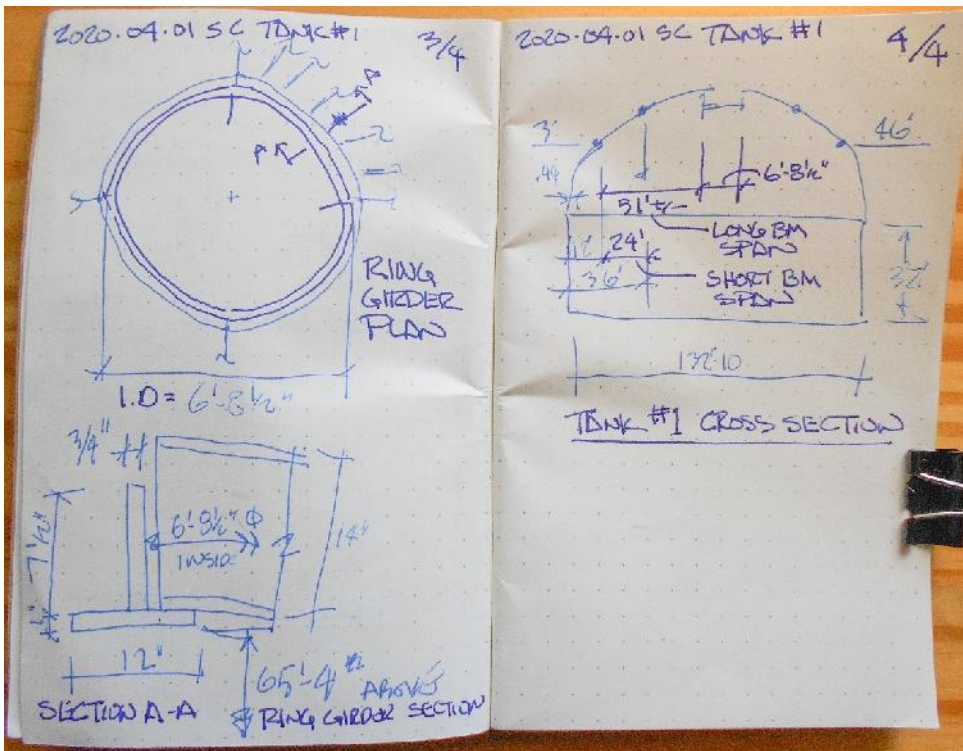 2020.04.01 SC TANK #1
3/4
A
A
RING
GIRDER
PLAN
I.D = 6'-8½"
3/4"
6'-8½" Φ
INSID
14"
7½"
12"
65'-4"
ABOVE
SECTION A-A
RING GIRDER SECTION
2020.04.01 SC TANK #1
4/4
3'
46'
.44
6'-8½"
51' +/-
LONG BM
SPAN
12'
24'
36'
SHORT BM
SPAN
32'
132'-10
TANK #1 CROSS SECTION